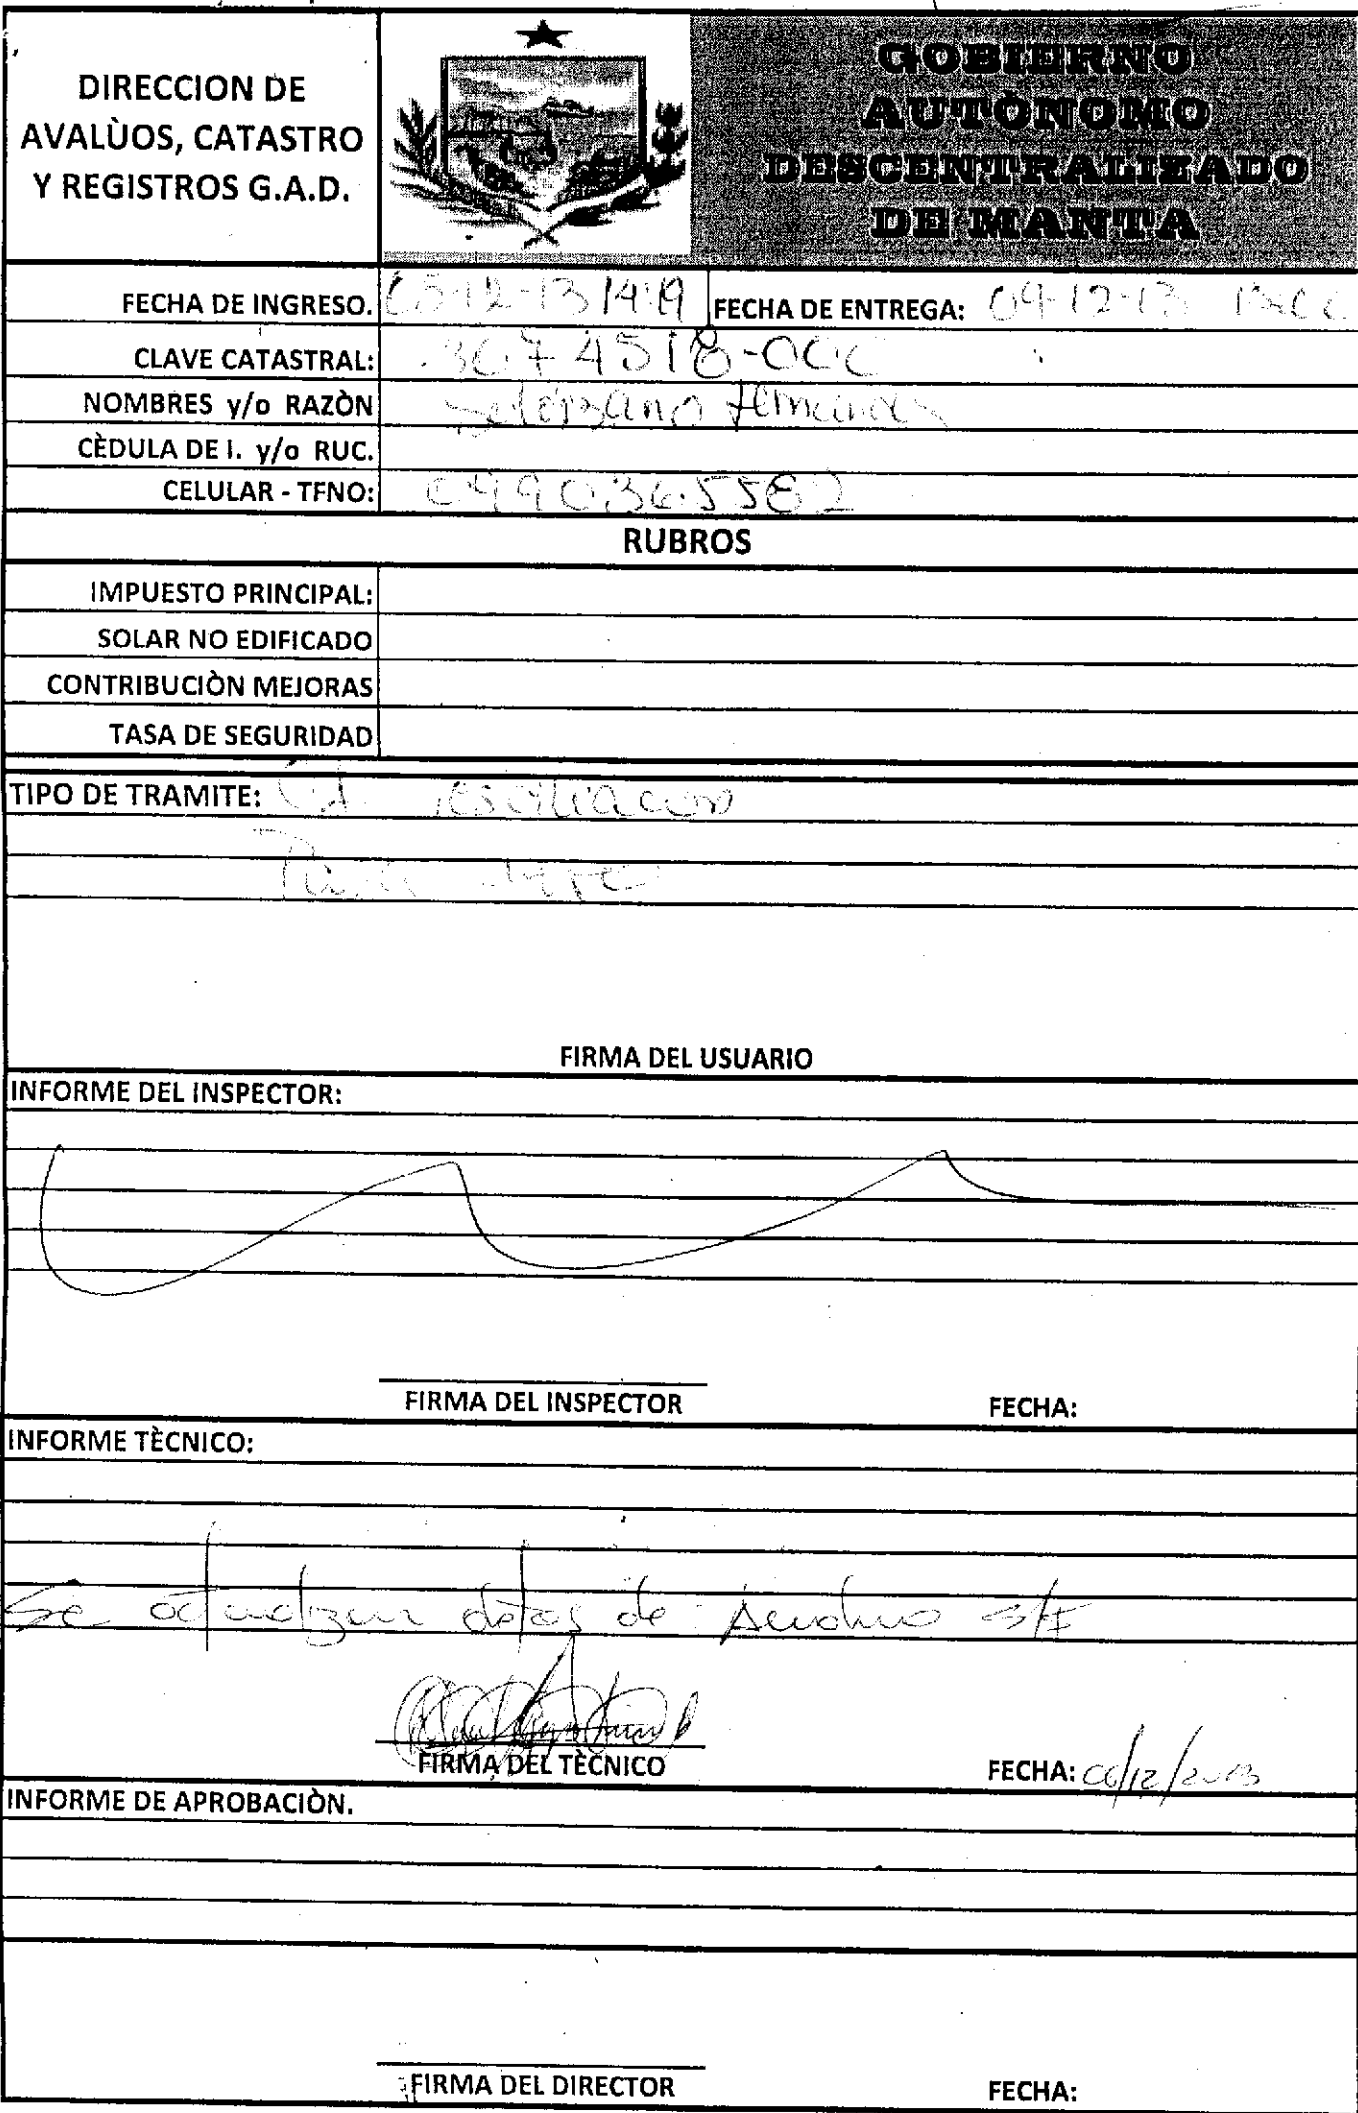 DIRECCION DE
AVALÙOS, CATASTRO
Y REGISTROS G.A.D.
GOBIERNO
AUTÒNOMO
DESCENTRALIZADO
DE MANTA
FECHA DE INGRESO. 05-12-13 14:19 FECHA DE ENTREGA: 09-12-13
CLAVE CATASTRAL: 3074518-000
NOMBRES y/o RAZÒN
CÈDULA DE I. y/o RUC.
CELULAR - TFNO: 0990365582
RUBROS
IMPUESTO PRINCIPAL:
SOLAR NO EDIFICADO
CONTRIBUCIÒN MEJORAS
TASA DE SEGURIDAD
TIPO DE TRAMITE:
FIRMA DEL USUARIO
INFORME DEL INSPECTOR:
FIRMA DEL INSPECTOR FECHA:
INFORME TÈCNICO:
Se actualizan datos de
FIRMA DEL TÈCNICO FECHA: 06/12/2013
INFORME DE APROBACIÒN.
FIRMA DEL DIRECTOR FECHA: